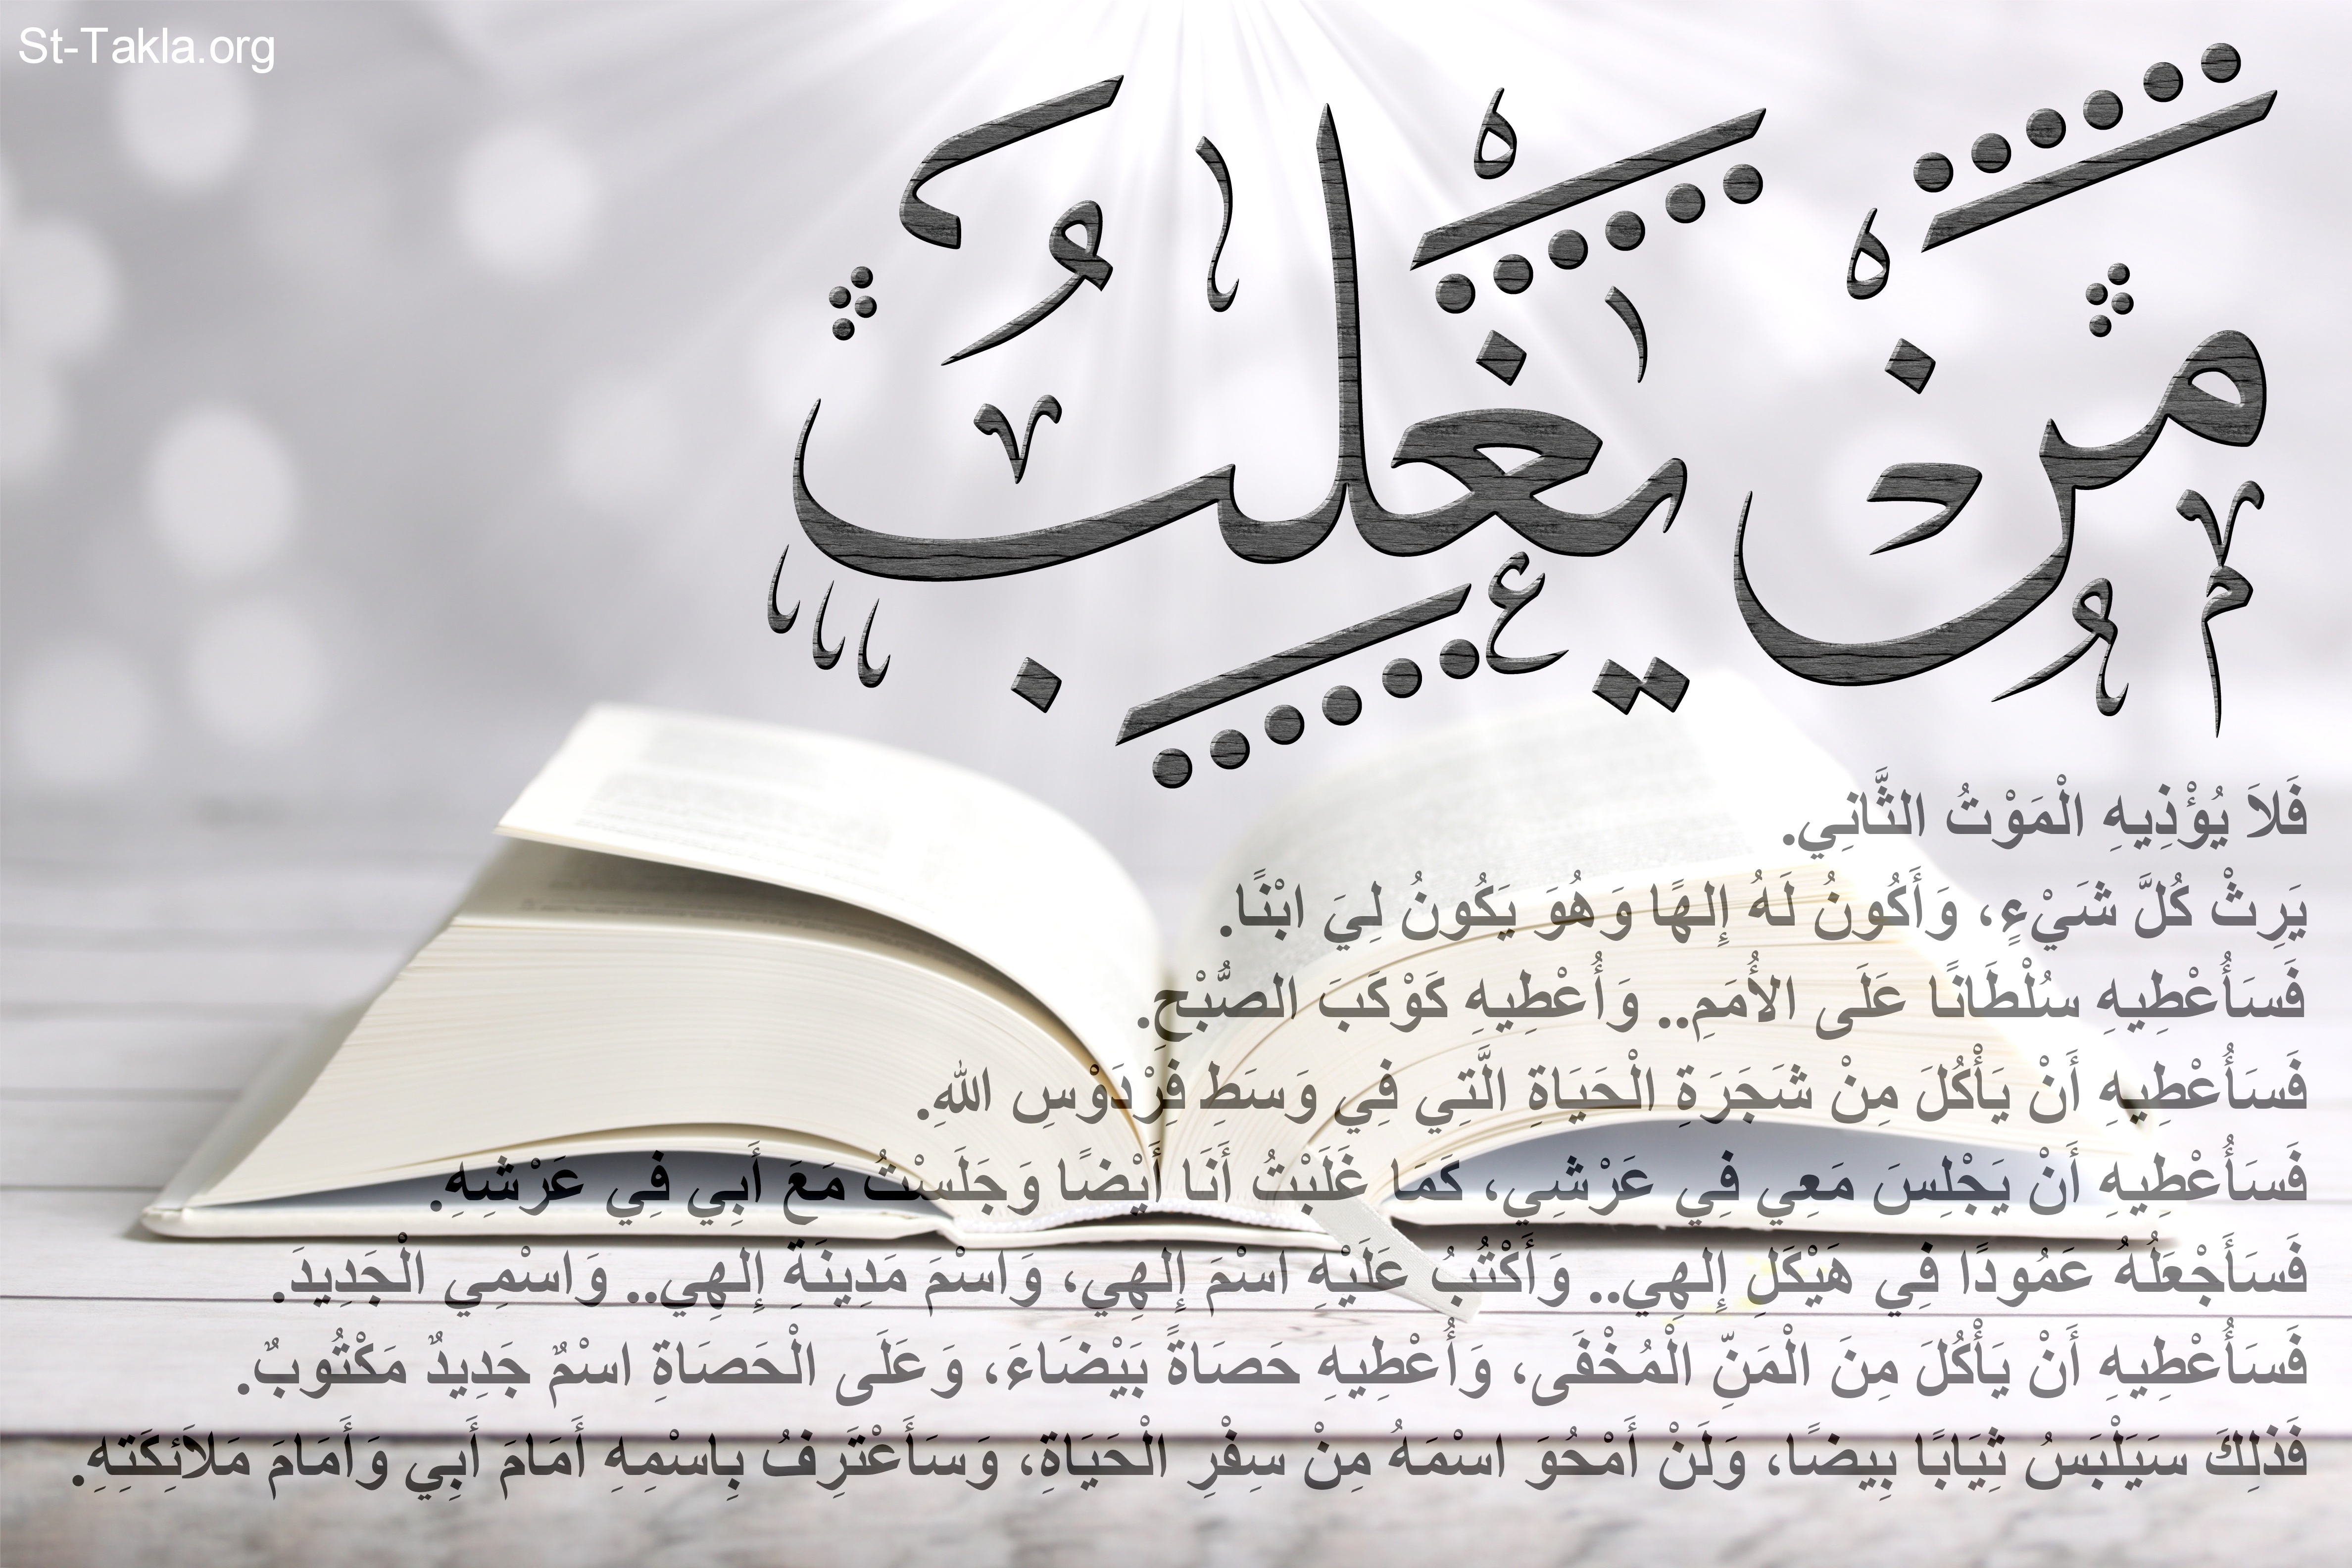 St-Takla.org
مَنْ يَغْلِبُ
فَلاَ يُؤْذِيهِ الْمَوْتُ الثَّانِي.
يَرِثْ كُلَّ شَيْءٍ، وَأَكُونُ لَهُ إِلهًا وَهُوَ يَكُونُ لِيَ ابْنًا.
فَسَأُعْطِيهِ سُلْطَانًا عَلَى الأُمَمِ.. وَأُعْطِيهِ كَوْكَبَ الصُّبْحِ.
فَسَأُعْطِيهِ أَنْ يَأْكُلَ مِنْ شَجَرَةِ الْحَيَاةِ الَّتِي فِي وَسَطِ فِرْدَوْسِ اللهِ.
فَسَأُعْطِيهِ أَنْ يَجْلِسَ مَعِي فِي عَرْشِي، كَمَا غَلَبْتُ أَنَا أَيْضًا وَجَلَسْتُ مَعَ أَبِي فِي عَرْشِهِ.
فَسَأَجْعَلُهُ عَمُودًا فِي هَيْكَلِ إِلهِي.. وَأَكْتُبُ عَلَيْهِ اسْمَ إِلهِي، وَاسْمَ مَدِينَةِ إِلهِي.. وَاسْمِي الْجَدِيدَ.
فَسَأُعْطِيهِ أَنْ يَأْكُلَ مِنَ الْمَنِّ الْمُخْفَى، وَأُعْطِيهِ حَصَاةً بَيْضَاءَ، وَعَلَى الْحَصَاةِ اسْمٌ جَدِيدٌ مَكْتُوبٌ.
فَذلِكَ سَيَلْبَسُ ثِيَابًا بِيضًا، وَلَنْ أَمْحُوَ اسْمَهُ مِنْ سِفْرِ الْحَيَاةِ، وَسَأَعْتَرِفُ بِاسْمِهِ أَمَامَ أَبِي وَأَمَامَ مَلاَئِكَتِهِ.